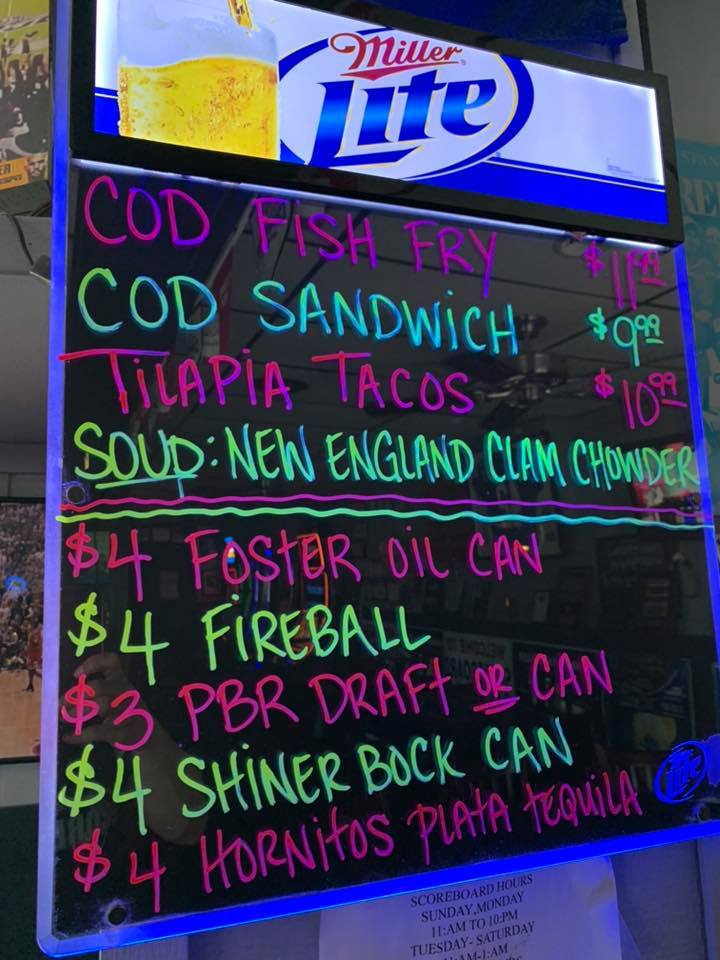 Miller
Lite
COD FISH FRY $11.99
COD SANDWICH $9.99
TILAPIA TACOS $10.99
SOUP: NEW ENGLAND CLAM CHOWDER
$4 FOSTER OIL CAN
$4 FIREBALL
$3 PBR DRAFT OR CAN
$4 SHINER BOCK CAN
$4 HORNITOS PLATA TEQUILA
Lite
SCOREBOARD HOURS
SUNDAY,MONDAY
11:AM TO 10:PM
TUESDAY- SATURDAY